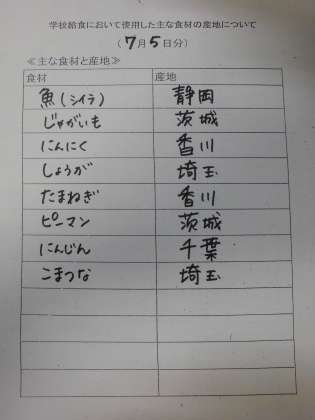 学校給食において使用した主な食材の産地について
(7月5日分)
≪主な食材と産地≫
食材 産地
魚(シイラ) 静岡
じゃがいも 茨城
にんにく 香川
しょうが 埼玉
たまねぎ 香川
ピーマン 茨城
にんじん 千葉
こまつな 埼玉